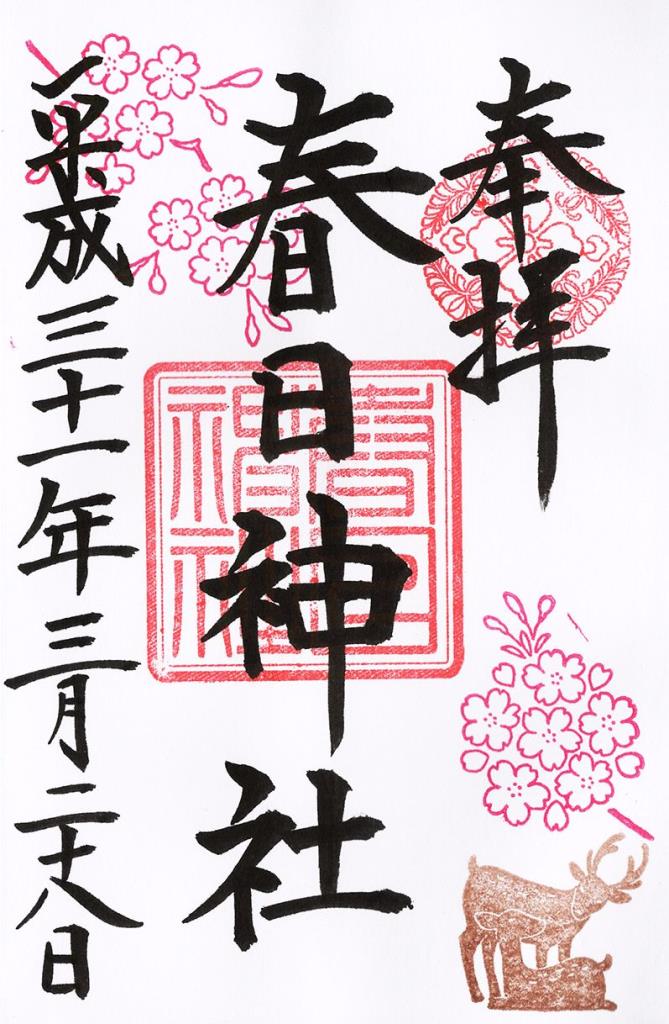 奉拝
春日神社
平成三十一年三月二十八日
春日
神社